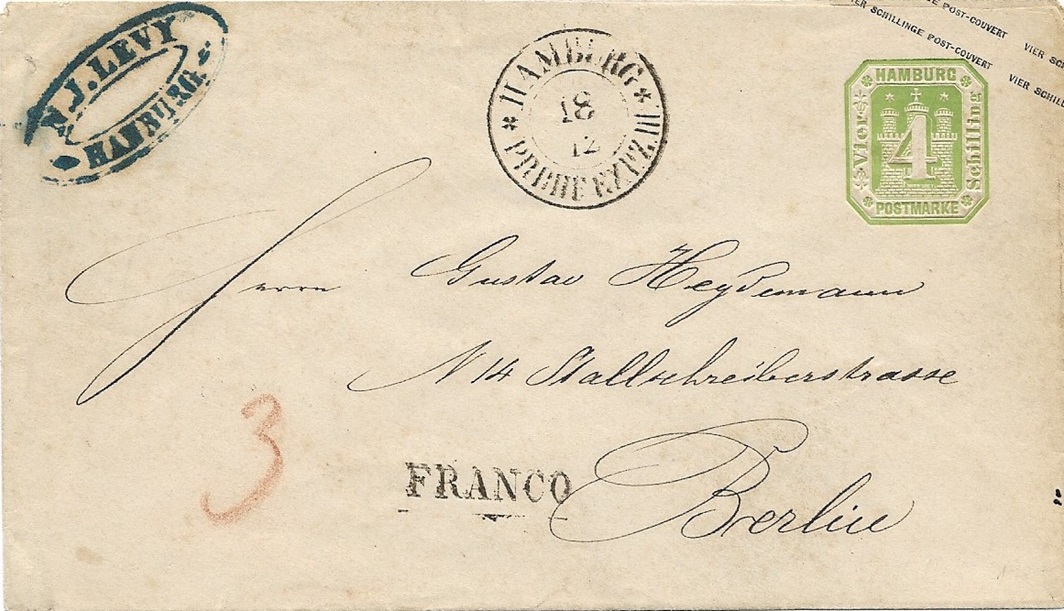 J. LEVY
HAMBURG.
HAMBURG
18
12
III
VIER SCHILLINGE POST-COUVERT
VIER SCHILLINGE POST-COUVERT VIER
VIER
HAMBURG
Vier 4 Schilling
POSTMARKE
Herrn Gustav Heydemann
N 14 Stallschreiberstrasse
Berlin
3
FRANCO